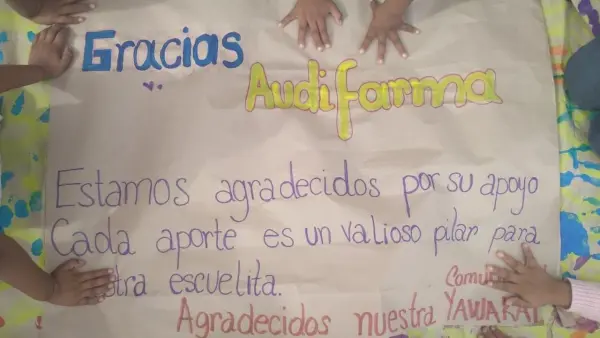 Gracias
Audifarma
Estamos agradecidos por su apoyo
Cada aporte es un valioso pilar para
escuelita.
Agradecidos nuestra